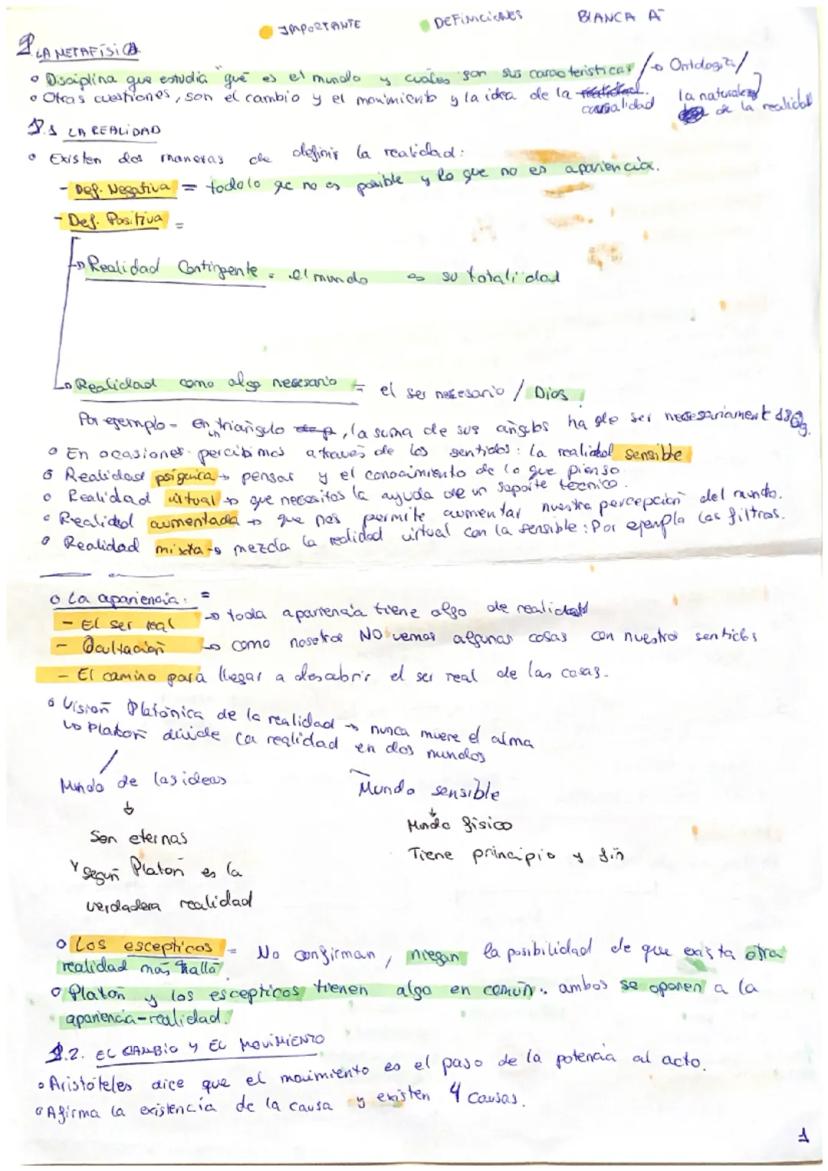 IMPORTANTE DEFINICIONES BLANCA A
1 LA METAFÍSICA
• Disciplina que estudia qué es el mundo y cuáles son sus características / → Ontología /
• Otras cuestiones, son el cambio y el movimiento y la idea de la causalidad la naturaleza de la realidad
1.1 LA REALIDAD
• Existen dos maneras de definir la realidad:
- Def. Negativa = todo lo qe no es posible y lo que no es apariencia.
- Def. Positiva =
→ Realidad Contingente = el mundo → su totalidad
→ Realidad como algo necesario = el ser necesario / Dios
Por ejemplo - en un triángulo, la suma de sus angulos ha de ser necesariament 180g.
• En ocasiones percibimos a través de los sentidos: la realidad sensible
• Realidad psíquica → pensar y el conocimiento de lo que pienso.
• Realidad virtual → que necesitas la ayuda de un soporte técnico.
• Realidad aumentada → que nos permite aumentar nuestra percepción del mundo.
• Realidad mixta → mezcla la realidad virtual con la sensible: Por ejemplo los filtros.
• La apariencia: =
- El ser real → toda apariencia tiene algo de realidad
- Ocultación → como nosotros NO vemos algunas cosas con nuestros sentidos
- El camino para llegar a descubrir el ser real de las cosas.
• Visión Platónica de la realidad → nunca muere el alma
→ Platón divide la realidad en dos mundos
Mundo de las ideas Mundo sensible
↓ ↓
Son eternas Mundo fisico
y según Platón es la Tiene principio y fin
verdadera realidad
• Los escepticos = No confirman, niegan la posibilidad de que exista otra
realidad más allá
• Platón y los escepticos tienen algo en común: ambos se oponen a la
apariencia-realidad.
1.2. EL CAMBIO Y EL MOVIMIENTO
• Aristóteles dice que el movimiento es el paso de la potencia al acto.
• Afirma la existencia de la causa y existen 4 causas.
1